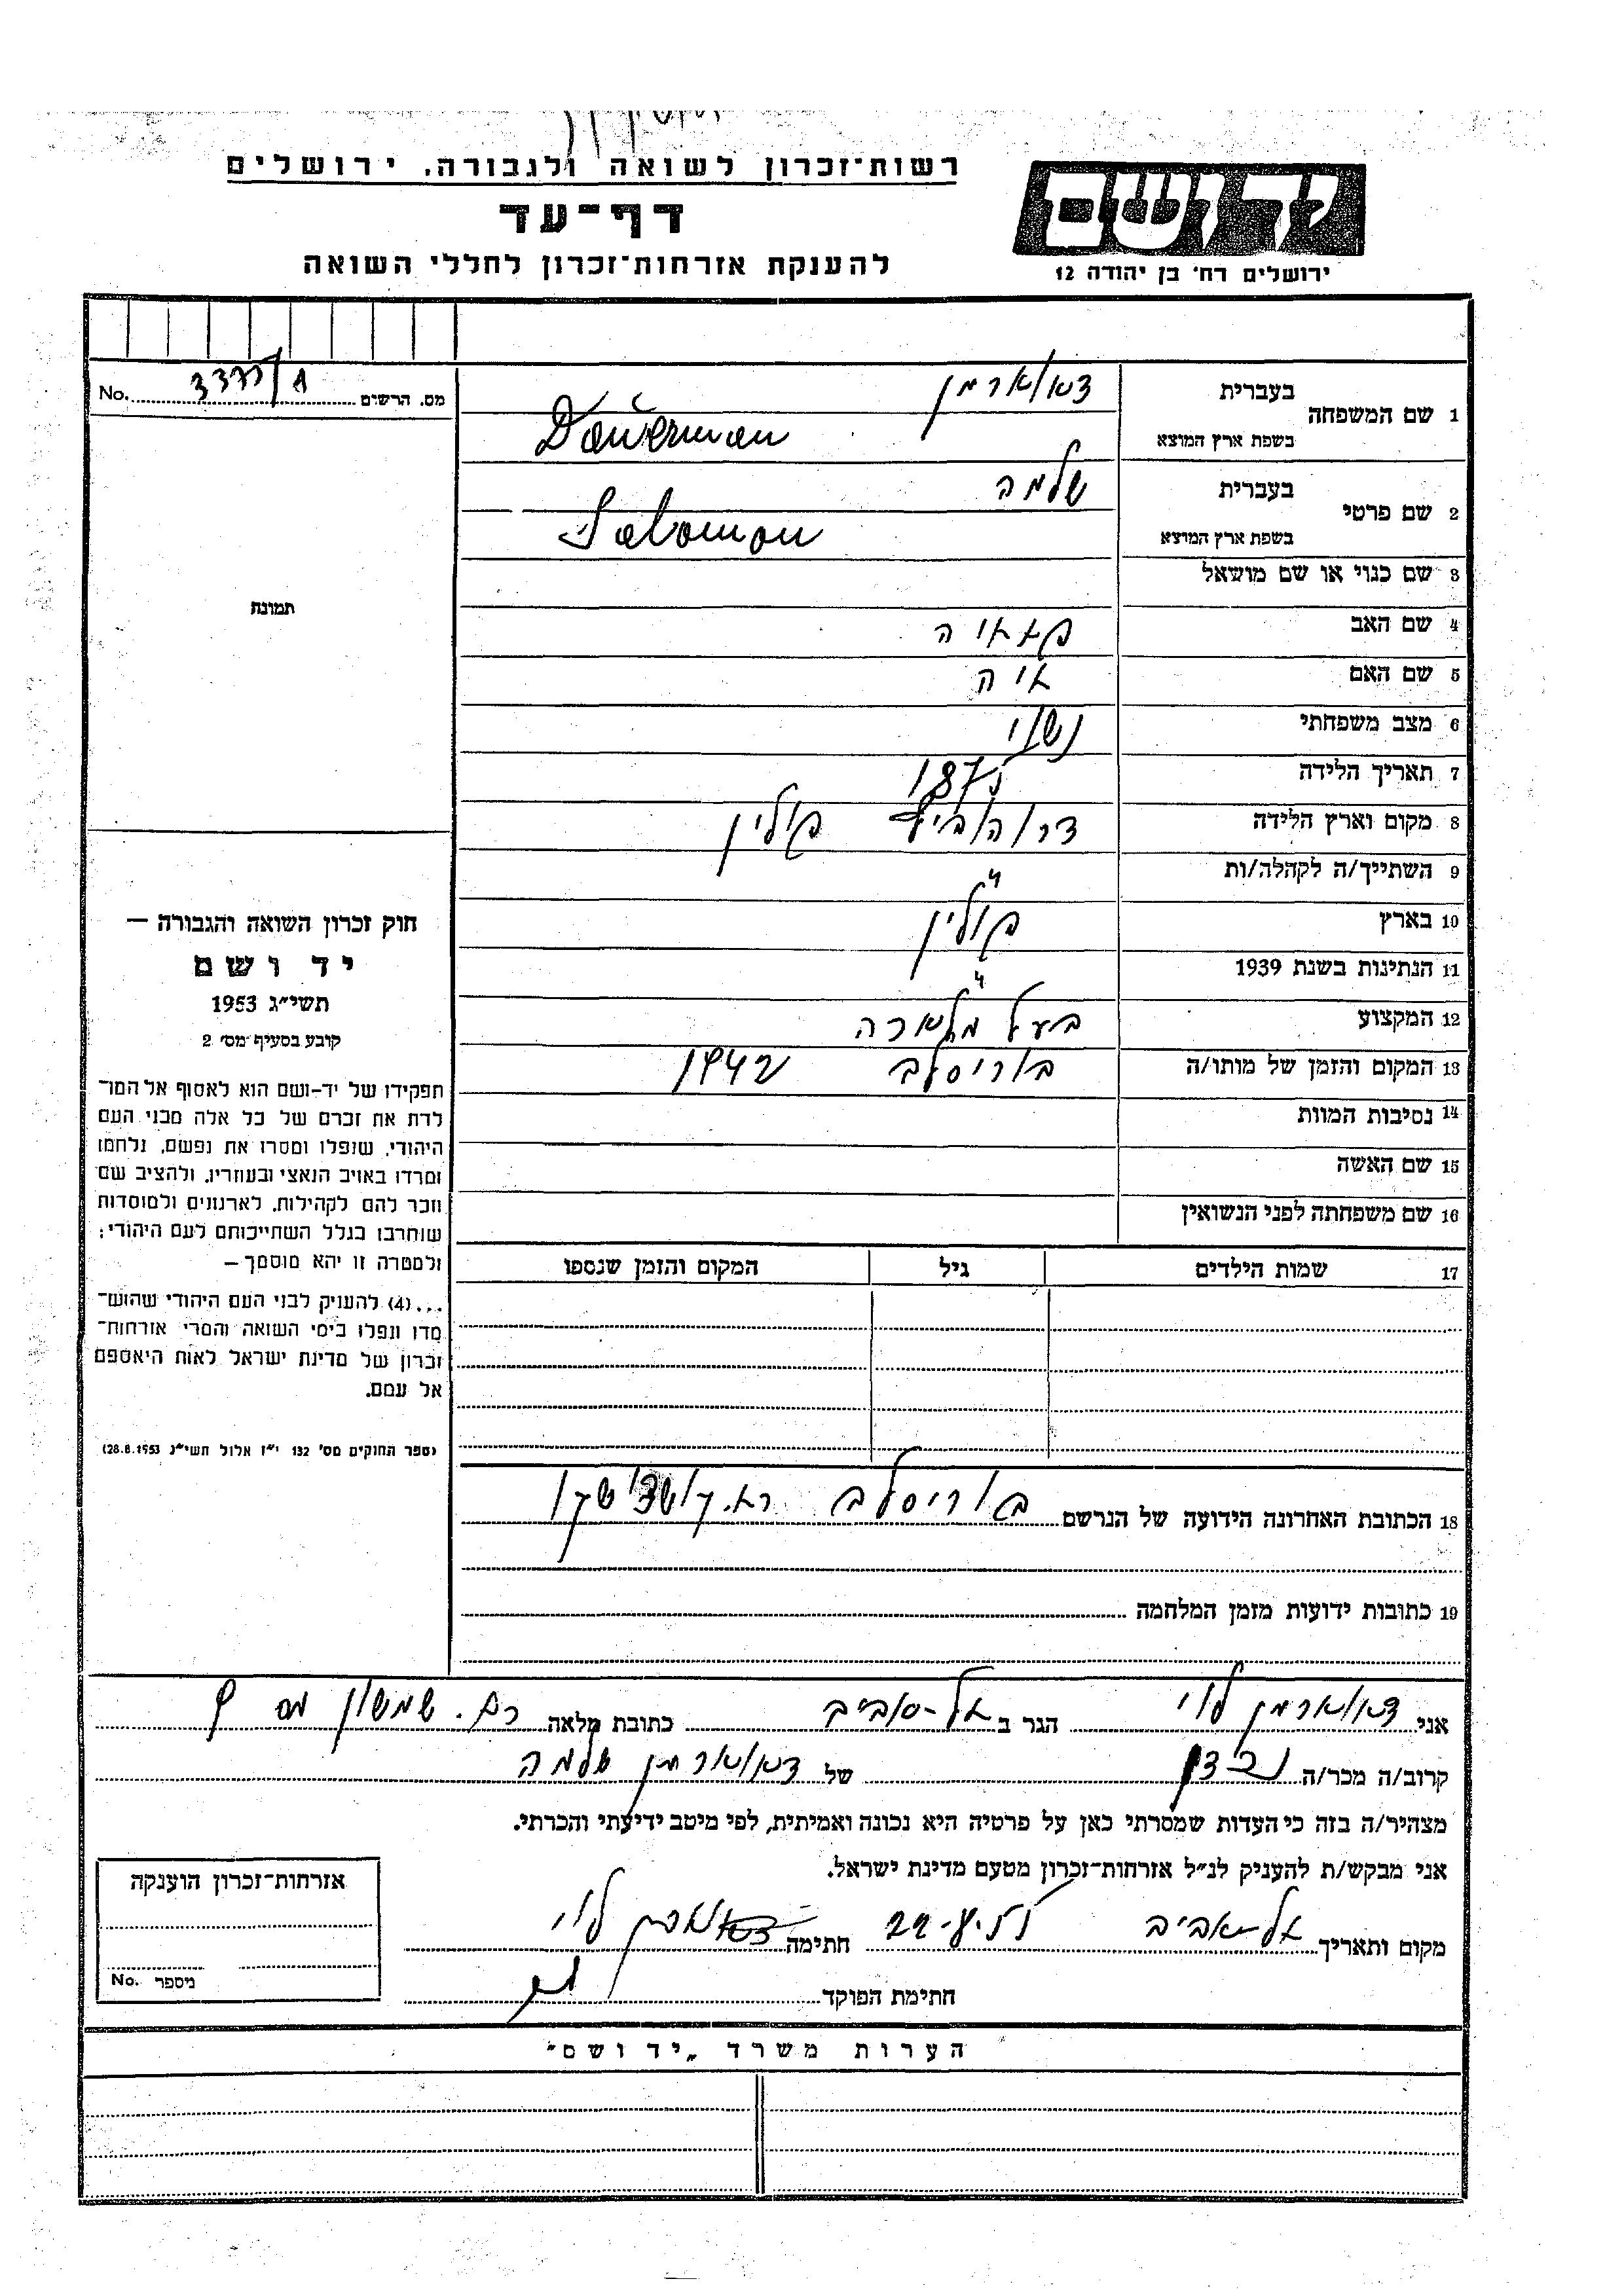 רשות־זכרון לשואה ולגבורה. ירושלים
דף־עד
להענקת אזרחות־זכרון לחללי השואה
ידושם
ירושלים רח׳ בן יהודה 12
מס. הרשים No.
1 שם המשפחה
בעברית
בשפת ארץ המוצא
Dauerman
2 שם פרטי
בעברית שלמה
בשפת ארץ המוצא Salomon
3 שם כנוי או שם מושאל
4 שם האב
5 שם האם
6 מצב משפחתי נשוי
7 תאריך הלידה
8 מקום וארץ הלידה פולין
9 השתייך/ה לקהלה/ות "
10 בארץ פולין
11 הנתינות בשנת 1939 "
12 המקצוע בעל מלאכה
13 המקום והזמן של מותו/ה בוריסלב 1942
14 נסיבות המוות
15 שם האשה
16 שם משפחתה לפני הנשואין
17 שמות הילדים גיל המקום והזמן שנספו
תמונת
חוק זכרון השואה והגבורה —
יד ושם
תשי״ג 1953
קובע בסעיף מס׳ 2
תפקידו של יד-ושם הוא לאסוף אל המו־
לדת את זכרם של כל אלה מבני העם
היהודי, שנפלו ומסרו את נפשם, נלחמו
ומרדו באויב הנאצי ובעוזריו, ולהציב שם
וזכר להם לקהילות, לארגונים ולמוסדות
שוחרבו בגלל השתייכותם לעם היהודי;
ולמטרה זו יהא מוסמך —
...(4) להעניק לבני העם היהודי שהוש־
מדו ונפלו בימי השואה והמרי אזרחות־
זכרון של מדינת ישראל לאות היאספם
אל עמם.
(ספר החוקים מס׳ 132 י״ז אלול תשי״ג 28.8.1953)
18 הכתובת האחרונה הידועה של הנרשם בוריסלב
19 כתובות ידועות מזמן המלחמה
אני לוי הגר ב תל-אביב כתובת מלאה רח. שמשון מס
קרוב/ה מכר/ה נכדן של שלמה
מצהיר/ה בזה כי העדות שמסרתי כאן על פרטיה היא נכונה ואמיתית, לפי מיטב ידיעתי והכרתי.
אני מבקש/ת להעניק לנ״ל אזרחות־זכרון מטעם מדינת ישראל.
מקום ותאריך תל-אביב חתימה לוי
חתימת הפוקד
אזרחות־זכרון הוענקה
מיספר No.
הערות משרד „יד ושם"